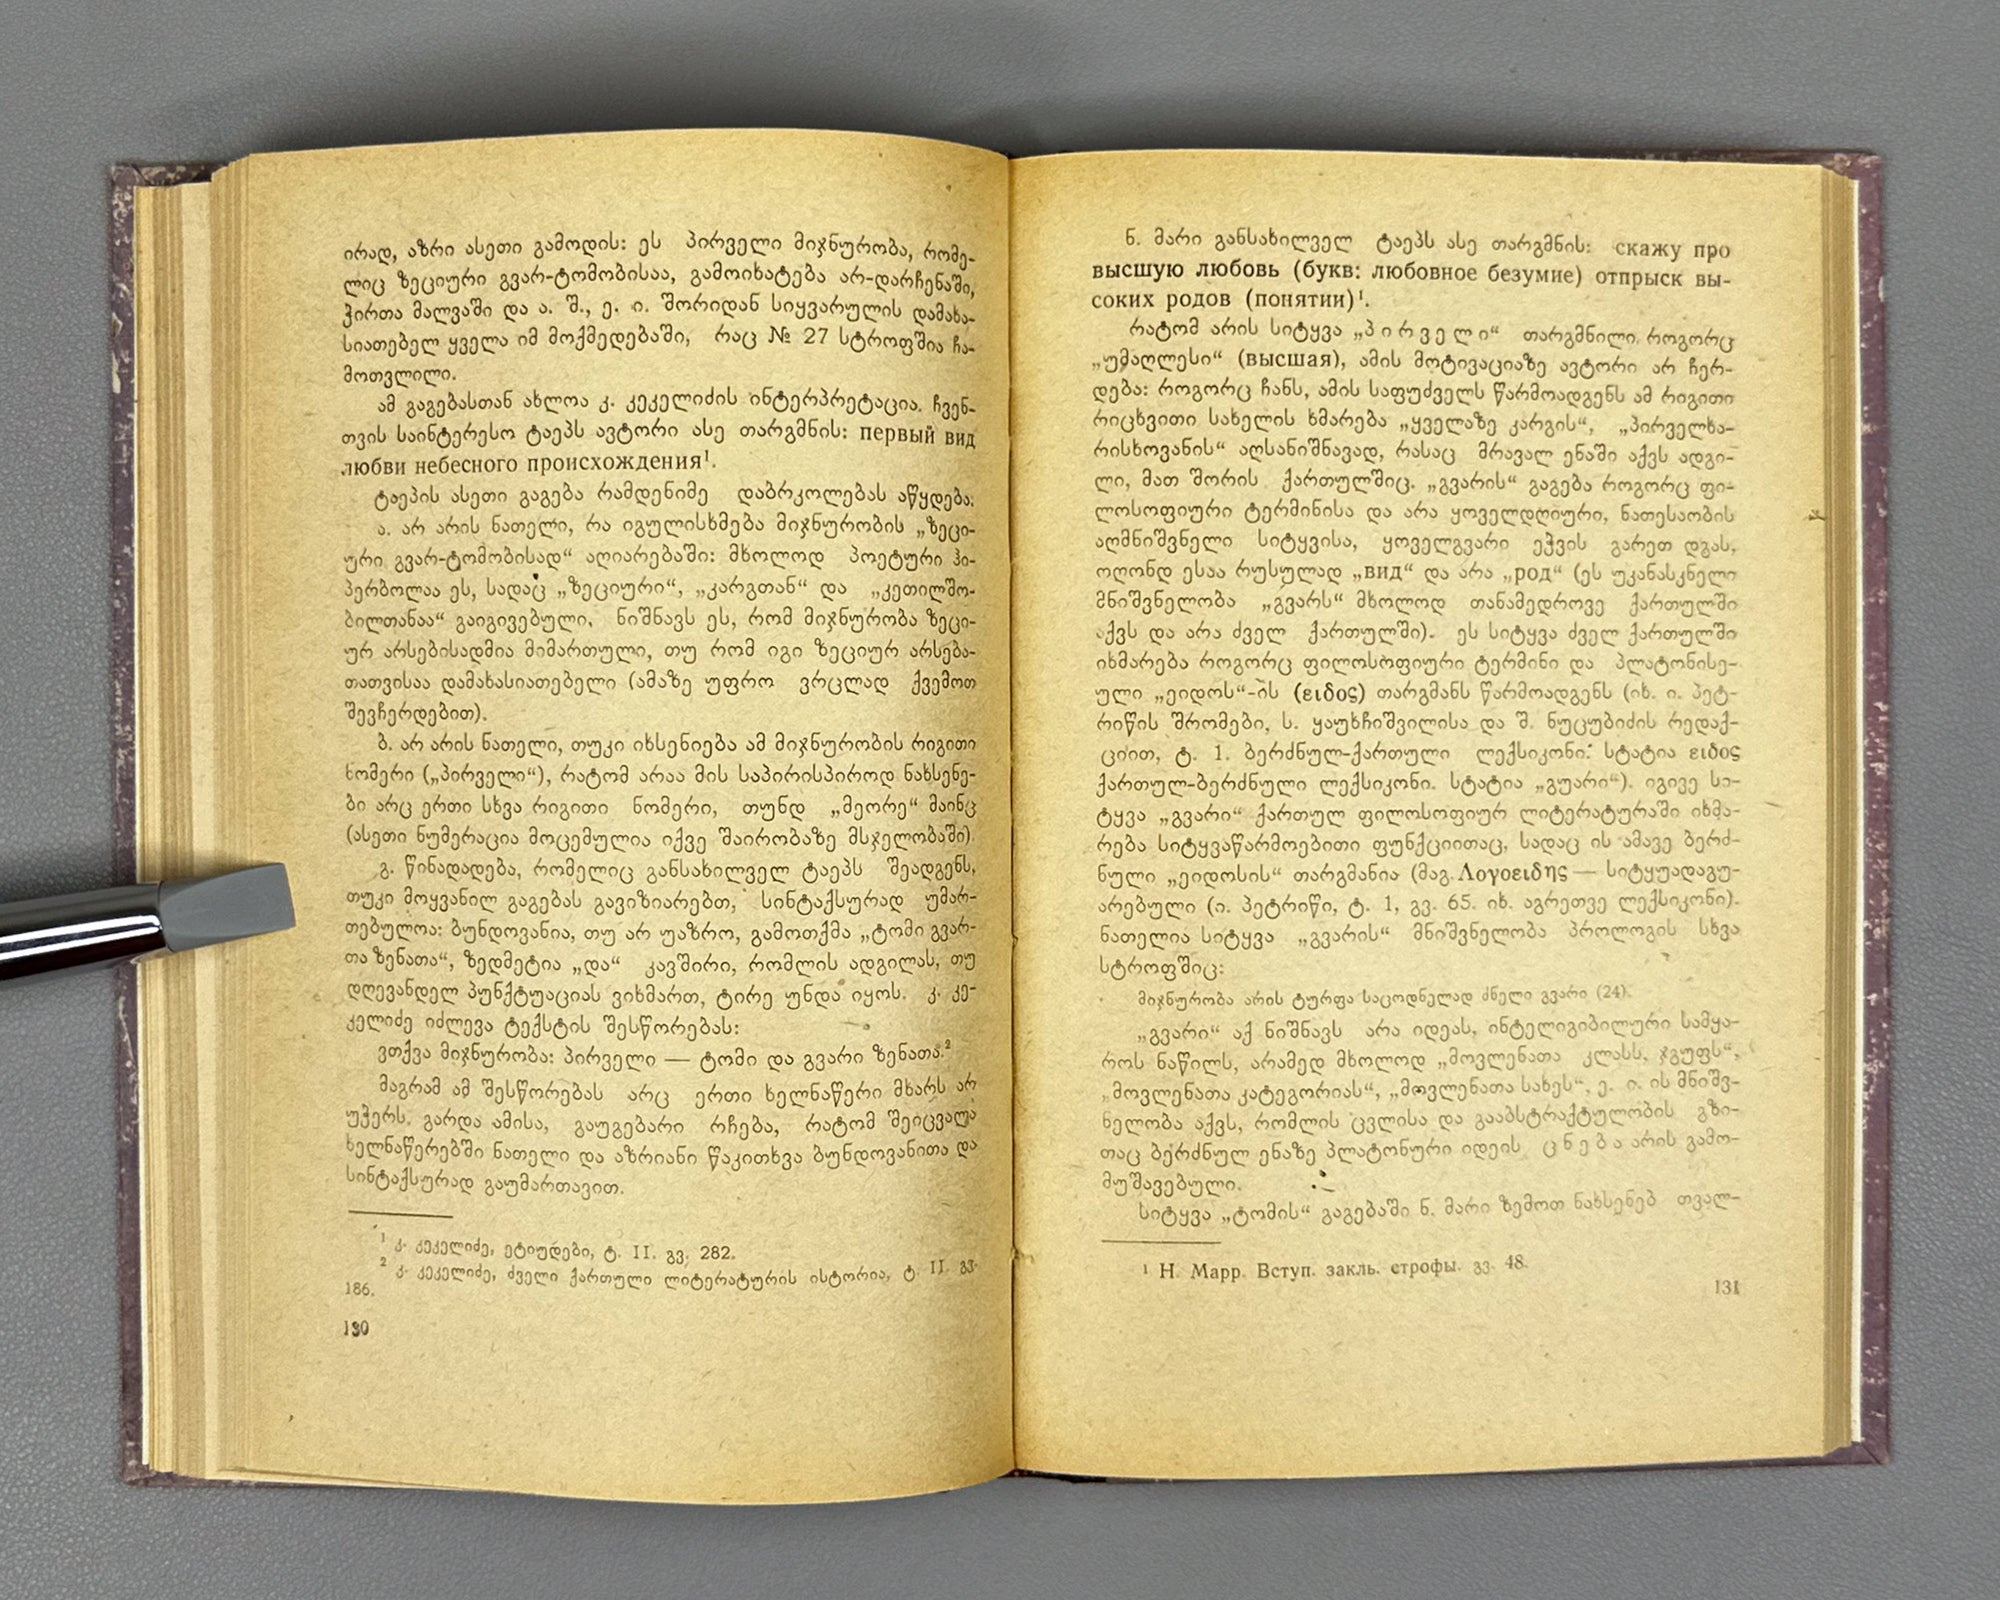 ირად, აზრი ასეთი გამოდის: ეს პირველი მიჯნურობა, რომე-
ლიც ზეციური გვარ-ტომობისაა, გამოიხატება არ-დარჩენაში,
ჭირთა მალვაში და ა. შ., ე. ი. შორიდან სიყვარულის დამახა-
სიათებელ ყველა იმ მოქმედებაში, რაც № 27 სტროფშია ჩა-
მოთვლილი.
ამ გაგებასთან ახლოა კ. კეკელიძის ინტერპრეტაცია. ჩვენ-
თვის საინტერესო ტაეპს ავტორი ასე თარგმნის: первый вид
любви небесного происхождения¹.
ტაეპის ასეთი გაგება რამდენიმე დაბრკოლებას აწყდება:
ა. არ არის ნათელი, რა იგულისხმება მიჯნურობის „ზეცი-
ური გვარ-ტომობისად“ აღიარებაში: მხოლოდ პოეტური ჰი-
პერბოლაა ეს, სადაც „ზეციური“, „კარგთან“ და „კეთილშო-
ბილთანაა“ გაიგივებული, ნიშნავს ეს, რომ მიჯნურობა ზეცი-
ურ არსებისადმია მიმართული, თუ რომ იგი ზეციურ არსება-
თათვისაა დამახასიათებელი (ამაზე უფრო ვრცლად ქვემოთ
შევჩერდებით).
ბ. არ არის ნათელი, თუკი იხსენიება ამ მიჯნურობის რიგითი
ნომერი („პირველი“), რატომ არაა მის საპირისპიროდ ნახსენე-
ბი არც ერთი სხვა რიგითი ნომერი, თუნდ „მეორე“ მაინც
(ასეთი ნუმერაცია მოცემულია იქვე შაირობაზე მსჯელობაში).
გ. წინადადება, რომელიც განსახილველ ტაეპს შეადგენს,
თუკი მოყვანილ გაგებას გავიზიარებთ, სინტაქსურად უმარ-
თებულოა: ბუნდოვანია, თუ არ უაზრო, გამოთქმა „ტომი გვარ-
თა ზენათა“, ზედმეტია „და“ კავშირი, რომლის ადგილას, თუ
დღევანდელ პუნქტუაციას ვიხმართ, ტირე უნდა იყოს. კ. კე-
კელიძე იძლევა ტექსტის შესწორებას:
ვთქვა მიჯნურობა: პირველი — ტომი და გვარი ზენათა.²
მაგრამ ამ შესწორებას არც ერთი ხელნაწერი მხარს არ
უჭერს. გარდა ამისა, გაუგებარი რჩება, რატომ შეიცვალა
ხელნაწერებში ნათელი და აზრიანი წაკითხვა ბუნდოვანითა და
სინტაქსურად გაუმართავით.
¹ კ. კეკელიძე, ეტიუდები, ტ. II. გვ. 282.
² კ. კეკელიძე, ძველი ქართული ლიტერატურის ისტორია, ტ. II გვ.
186.
130
ნ. მარი განსახილველ ტაეპს ასე თარგმნის: скажу про
высшую любовь (букв: любовное безумие) отпрыск вы-
соких родов (понятии)¹.
რატომ არის სიტყვა „პირველი“ თარგმნილი როგორც
„უმაღლესი“ (высшая), ამის მოტივაციაზე ავტორი არ ჩერ-
დება: როგორც ჩანს, ამის საფუძველს წარმოადგენს ამ რიგითი
რიცხვითი სახელის ხმარება „ყველაზე კარგის“, „პირველხა-
რისხოვანის“ აღსანიშნავად, რასაც მრავალ ენაში აქვს ადგი-
ლი, მათ შორის ქართულშიც. „გვარის“ გაგება როგორც ფი-
ლოსოფიური ტერმინისა და არა ყოველდღიური, ნათესაობის
აღმნიშვნელი სიტყვისა, ყოველგვარი ეჭვის გარეთ დგას,
ოღონდ ესაა რუსულად „вид“ და არა „род“ (ეს უკანასკნელი
მნიშვნელობა „გვარს“ მხოლოდ თანამედროვე ქართულში
აქვს და არა ძველ ქართულში). ეს სიტყვა ძველ ქართულში
იხმარება როგორც ფილოსოფიური ტერმინი და პლატონისე-
ული „ეიდოს“-ის (ειδος) თარგმანს წარმოადგენს (იხ. ი. პეტ-
რიწის შრომები, ს. ყაუხჩიშვილისა და შ. ნუცუბიძის რედაქ-
ციით, ტ. 1. ბერძნულ-ქართული ლექსიკონი: სტატია ειδος
ქართულ-ბერძნული ლექსიკონი. სტატია „გუარი“). იგივე სი-
ტყვა „გვარი“ ქართულ ფილოსოფიურ ლიტერატურაში იხმა-
რება სიტყვაწარმოებითი ფუნქციითაც, სადაც ის ამავე ბერძ-
ნული „ეიდოსის“ თარგმანია (მაგ. Λογοειδης — სიტყუადაგუ-
არებული (ი. პეტრიწი, ტ. 1, გვ. 65. იხ. აგრეთვე ლექსიკონი).
ნათელია სიტყვა „გვარის“ მნიშვნელობა პროლოგის სხვა
სტროფშიც:
მიჯნურობა არის ტურფა საცოდნელად ძნელი გვარი (24).
„გვარი“ აქ ნიშნავს არა იდეას, ინტელიგიბილური სამყა-
როს ნაწილს, არამედ მხოლოდ „მოვლენათა კლასს, ჯგუფს“,
„მოვლენათა კატეგორიას“, „მოვლენათა სახეს“, ე. ი. ის მნიშვ-
ნელობა აქვს, რომლის ცვლისა და გააბსტრაქტულობის გზი-
თაც ბერძნულ ენაზე პლატონური იდეის ცნება არის გამო-
მუშავებული.
სიტყვა „ტომის“ გაგებაში ნ. მარი ზემოთ ნახსენებ თვალ-
¹ Н. Марр. Вступ. закль. строфы. გვ. 48.
131